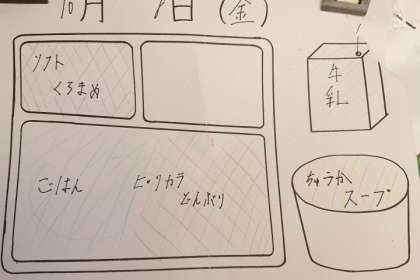 10月 9日 (金)
ソフト
くろまめ
牛
乳
ごはん
ピリカラ
どんぶり
ちゅうか
スープ